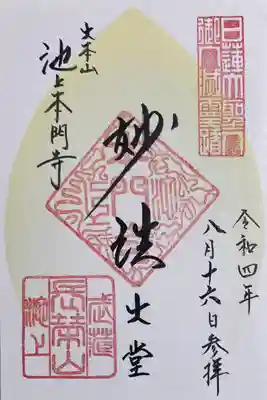 日蓮大聖人
御入滅霊跡
令和四年
八月十六日参拝
妙法
大堂
大本山
池上本門寺
武蔵
長栄山
池上